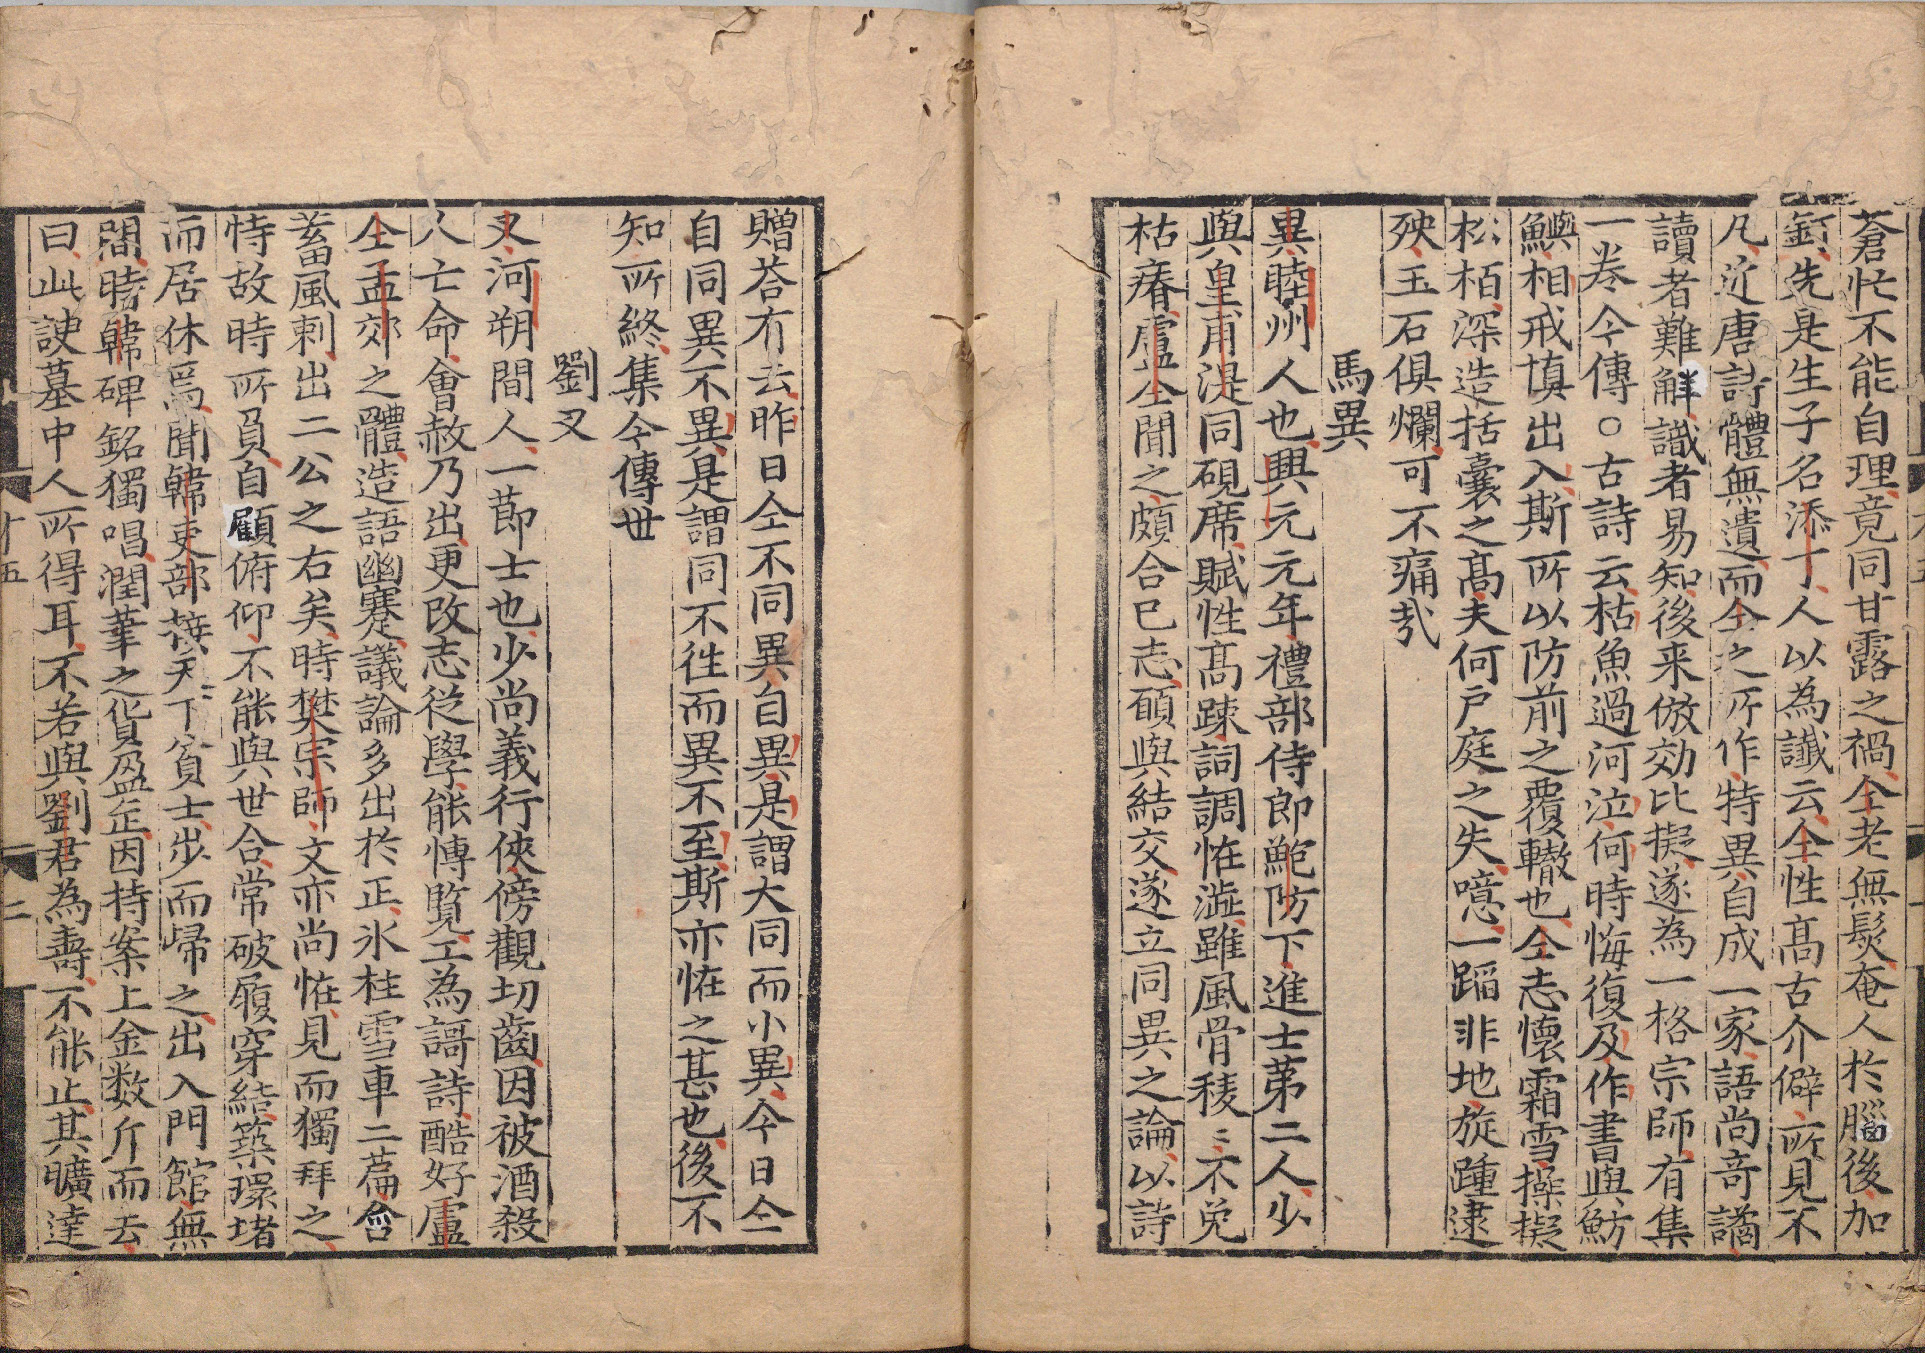 蒼忙不能自理竟同甘露之禍仝老無髮奄人於腦後加
釘先是生子名添丁人以為讖云仝性髙古介僻所見不
凡近唐詩體無遺而仝之所作特異自成一家語尚竒譎
讀者難觧識者易知後来倣効比擬遂為一格宗師有集
一卷今傳○古詩云枯魚過河泣何時悔復及作書與魴
鱮相戒慎出入斯所以防前之覆轍也仝志懷霜雪操擬
松栢深造括囊之髙夫何戸庭之失噫一蹈非地旋踵逮
殃玉石俱爛可不痛㢤
馬異
異睦州人也興元元年禮部侍郎鮑防下進士苐二人少
與皇甫湜同硯席賦性髙踈詞調恠澁雖風骨稜〻不免
枯瘠盧仝聞之頗合已志願與結交遂立同異之論以詩
贈荅有云昨日仝不同異自異是謂大同而小異今日仝
自同異不異是謂同不徃而異不至斯亦恠之甚也後不
知所終集今傳世
劉叉
叉河朔間人一莭士也少尚義行俠傍觀切齒因被酒殺
人亡命㑹赦乃出更改志從學能慱覽工為謌詩酷好盧
仝孟郊之體造語幽蹇議論多出於正氷柱雪車二萹含
蓄風刺出二公之右矣時樊宗師文亦尚恠見而獨拜之
恃故時所負自顧俯仰不能與世合常破履穿結築環堵
而居休焉聞韓吏部接天下貧士步而歸之出入門館無
間時韓碑銘獨唱潤筆之貨盈缶因持案上金数斤而去
曰此諛墓中人所得耳不若與劉君為壽不能止其曠達
十五
二